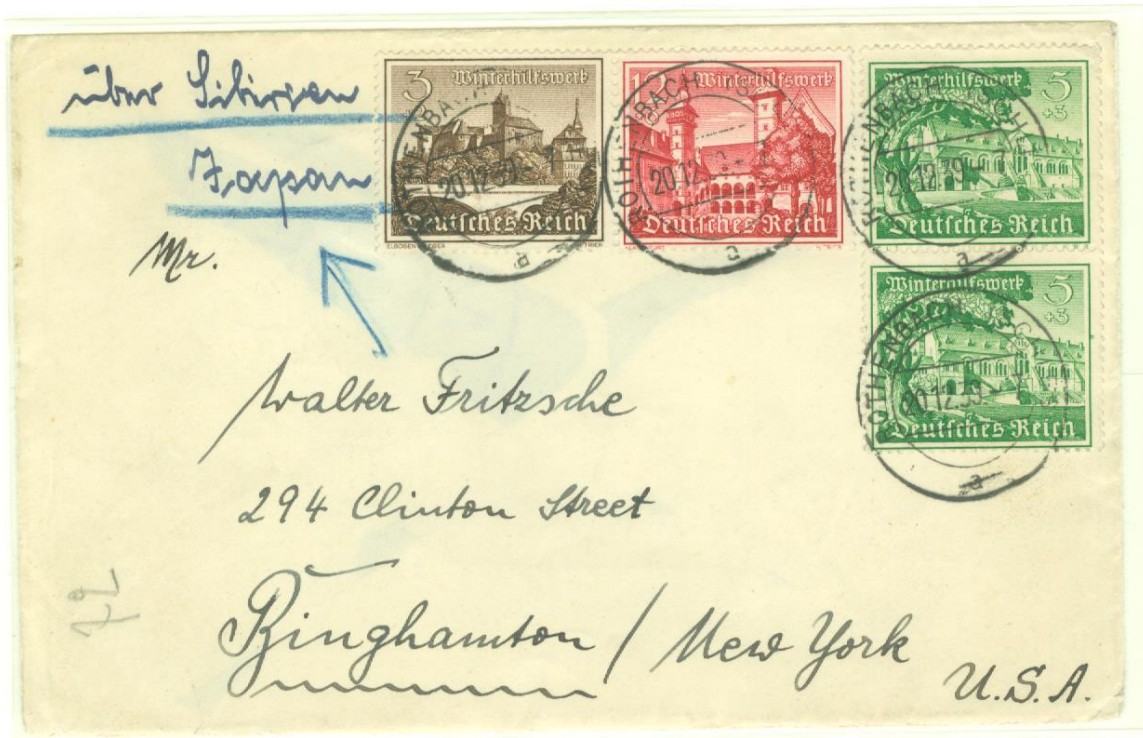 über Sibirien
Japan
3 Winterhilfswerk
Deutsches Reich
Winterhilfswerk
Deutsches Reich
Winterhilfswerk 5
+3
Deutsches Reich
Winterhilfswerk 5
+3
Deutsches Reich
20.12.39
20.12.39
20.12.39
Mr.
Walter Fritzsche
294 Clinton Street
Binghamton / New York
U.S.A.